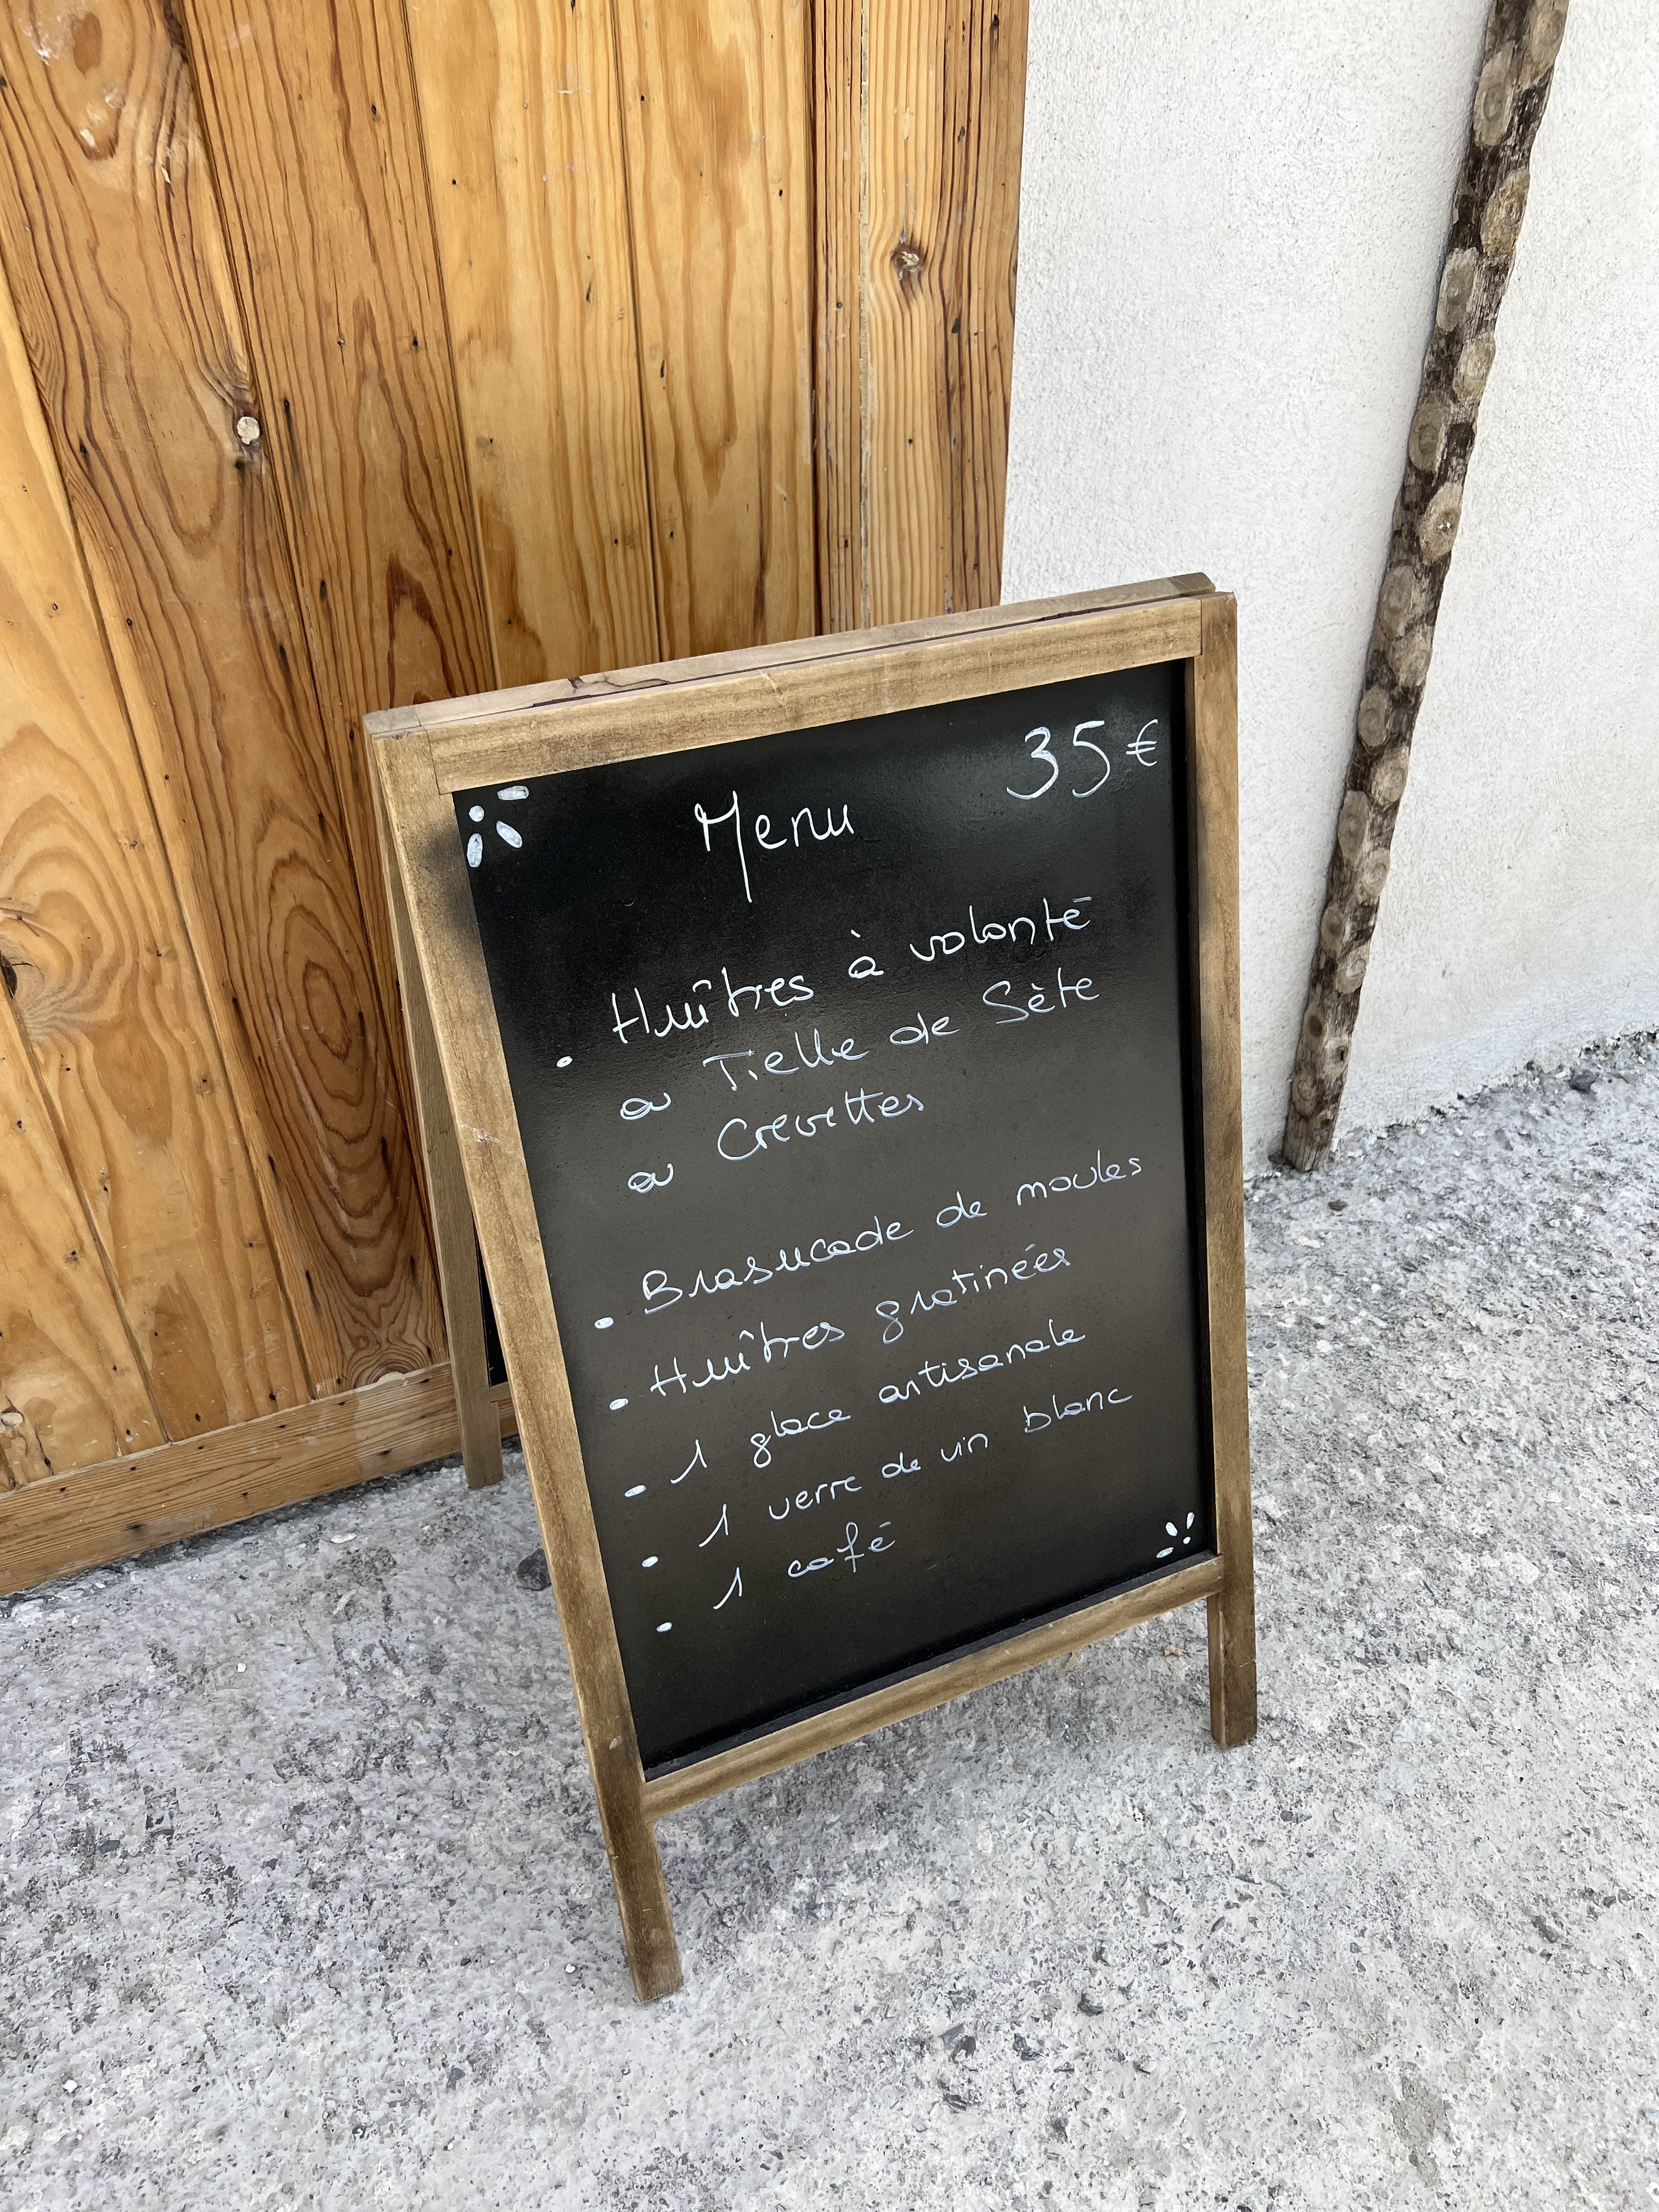 Menu 35€
• Huîtres à volonté
ou Tielle de Sète
ou Crevettes
• Brasucade de moules
• Huîtres gratinées
• 1 glace artisanale
• 1 verre de vin blanc
• 1 café